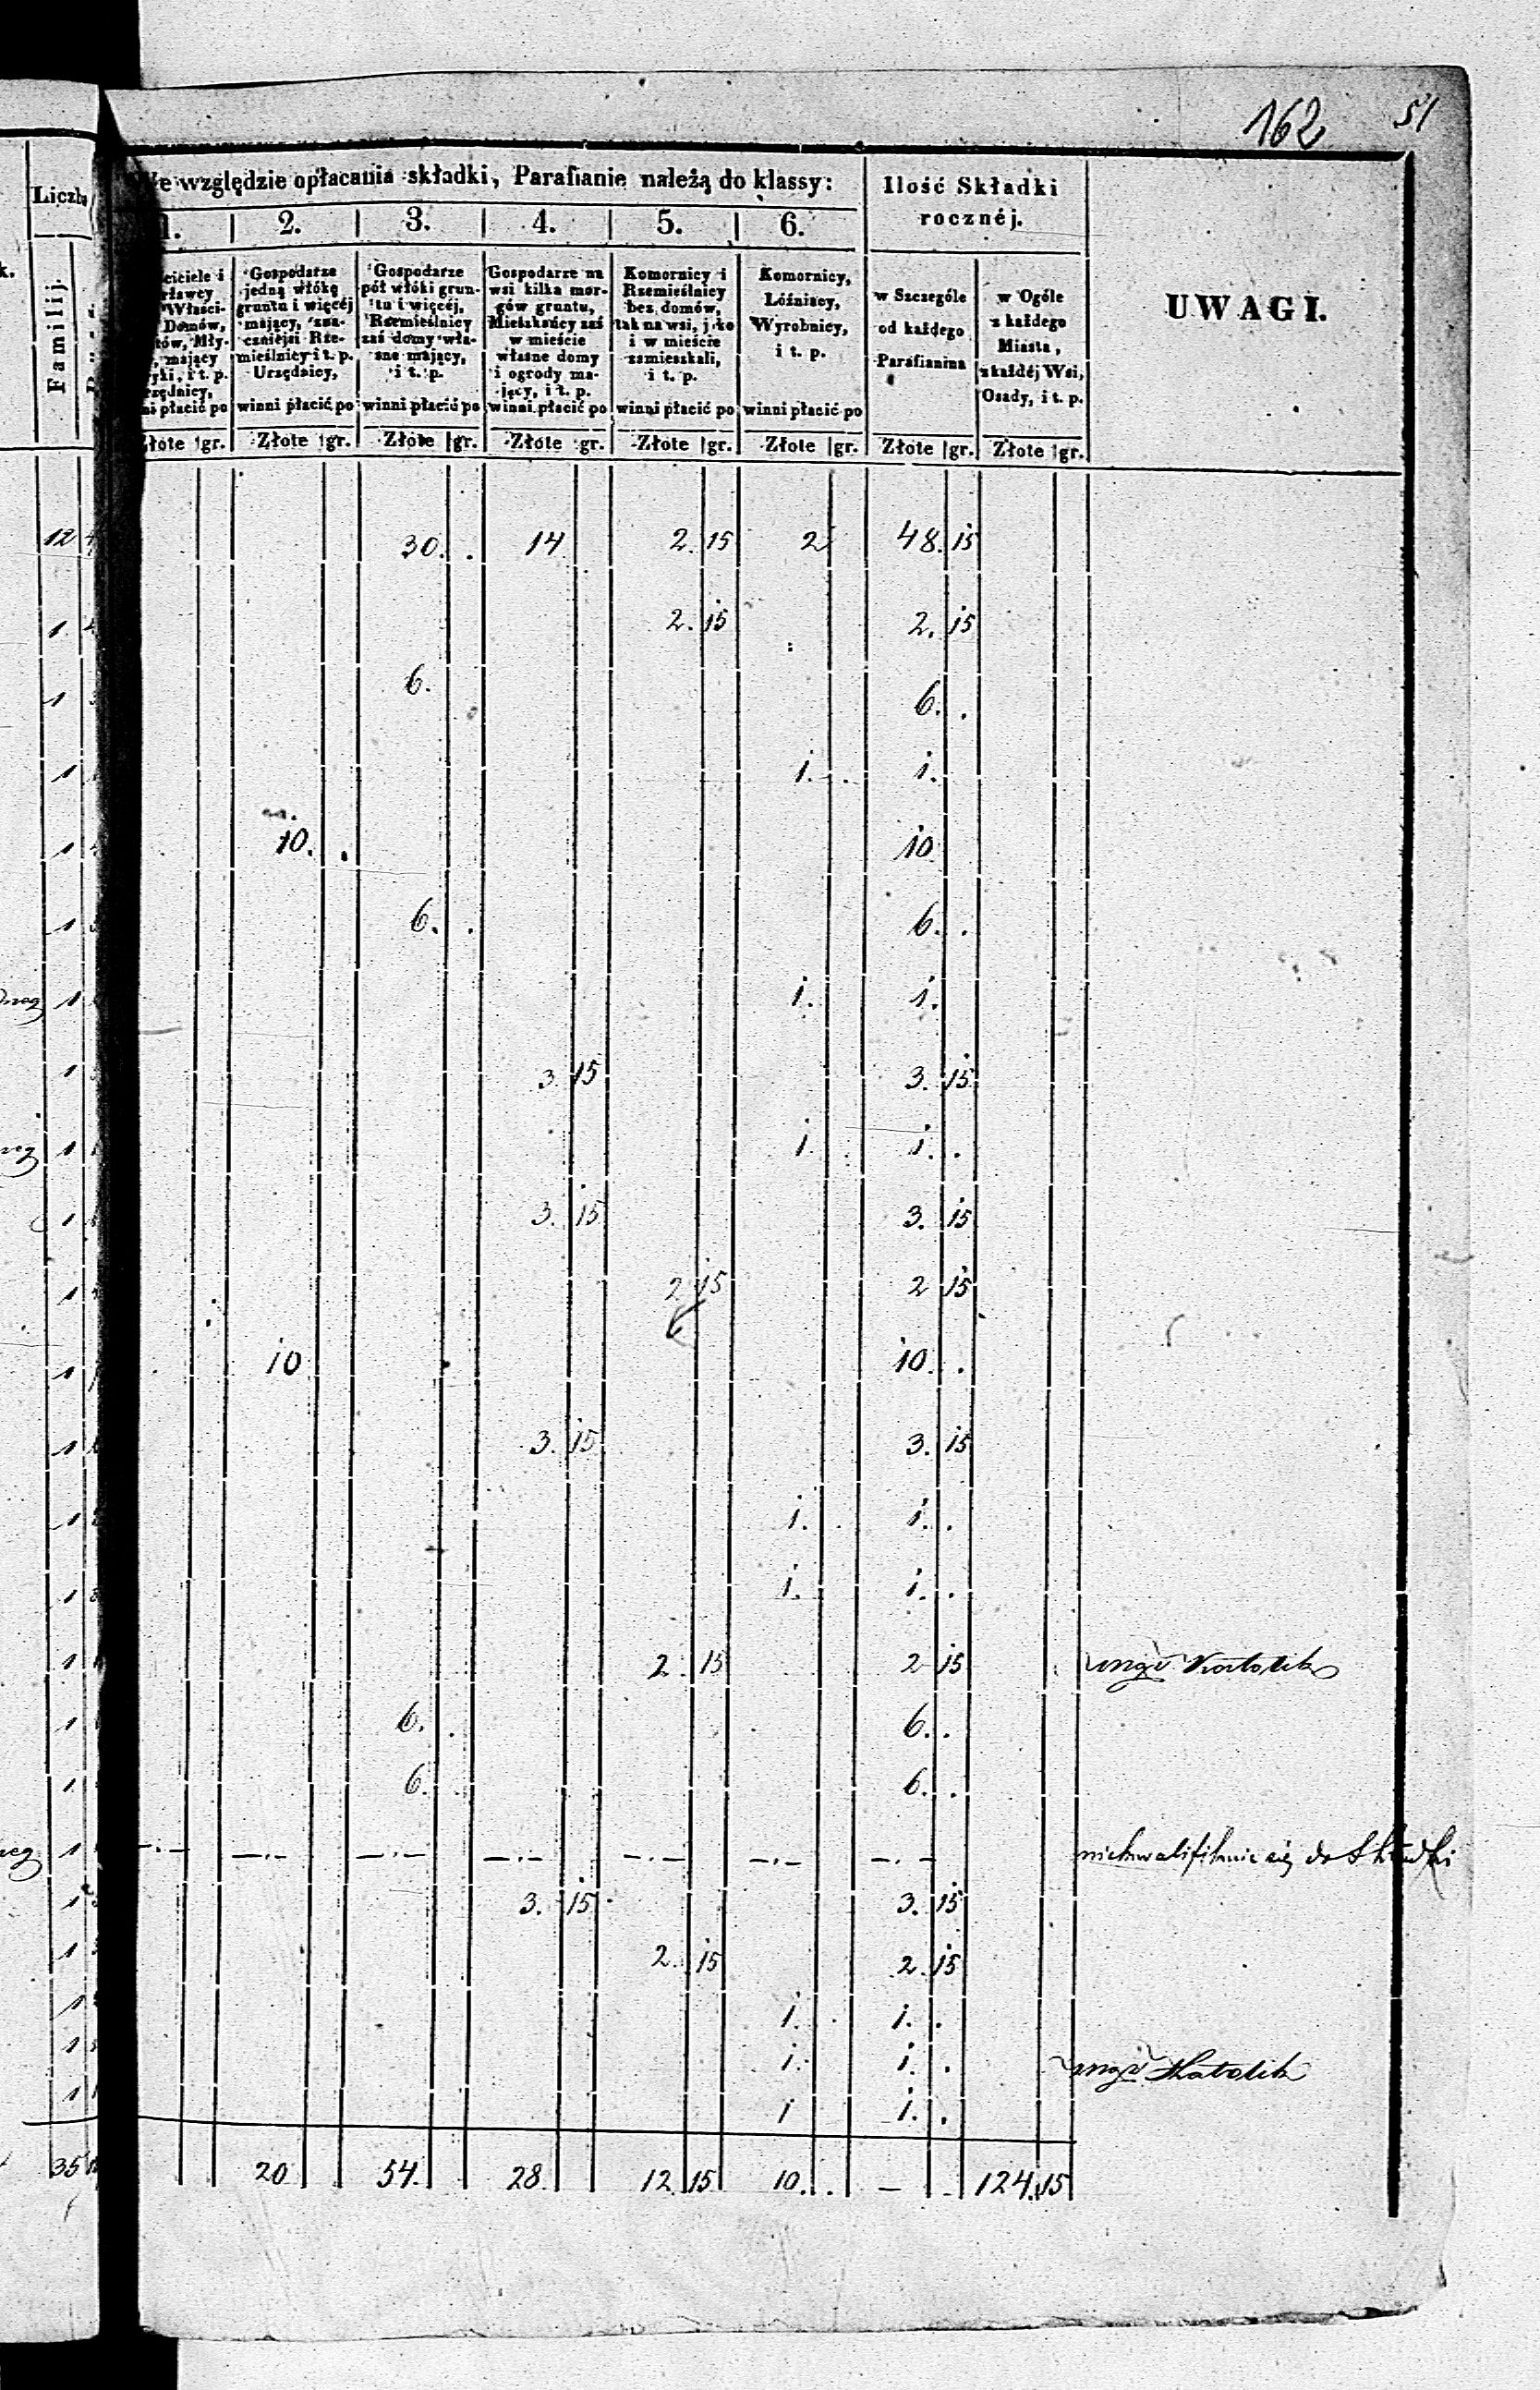 162 51
Liczba
Familij.
We względzie opłacania składki, Parafianie należą do klassy:
Ilość Składki
rocznéj.
UWAGI.
1. 2. 3. 4. 5. 6.
Gospodarze
jedną włókę
gruntu i więcéj
mający, zna-
czniejsi Rze-
mieślnicy i t. p.
Urzędnicy,
winni płacić po
Gospodarze
pół włóki grun-
tu i więcéj,
Rzemieślnicy
zaś domy wła-
sne mający,
i t. p.
winni płacić po
Gospodarze na
wsi kilka mor-
gów gruntu,
Mieszkańcy zaś
w mieście
własne domy
i ogrody ma-
jący, i t. p.
winni płacić po
Komornicy i
Rzemieślnicy
bez domów,
tak na wsi, jako
i w mieście
zamieszkali,
i t. p.
winni płacić po
Komornicy,
Łóźnicy,
Wyrobnicy,
i t. p.
winni płacić po
w Szczególe
od każdego
Parafianina
w Ogóle
z każdego
Miasta,
z każdéj Wsi,
Osady, i t. p.
Złote gr. Złote gr. Złote gr. Złote gr. Złote gr. Złote gr. Złote gr. Złote gr.
12 30. . 14 2. 15 2 48. 15
1. 2. 15 2. 15
1 6. 6. .
1 1. . 1.
1 10. . 10
1 6. . 6. .
1 1. 1.
1 3. 15 3. 15
1 1 1. .
1 3. 15 3. 15
1 2 15 2 15
1 10 10. .
1 3. 15 3. 15
1 1. . 1. .
1 1. 1. .
1 2. 15 2 15 Katolik
1 6. . 6. .
1 6. 6. .
1 —.— —.— —.— —.— —.— —.— —.— niekwalifikuie się do Składki
1 3. 15 3. 15
1 2. 15 2. 15
1 1. . 1. .
1 1. 1. . Katolik
1 1 1. .
35 20 54. 28. 12. 15 10. . — . 124. 15